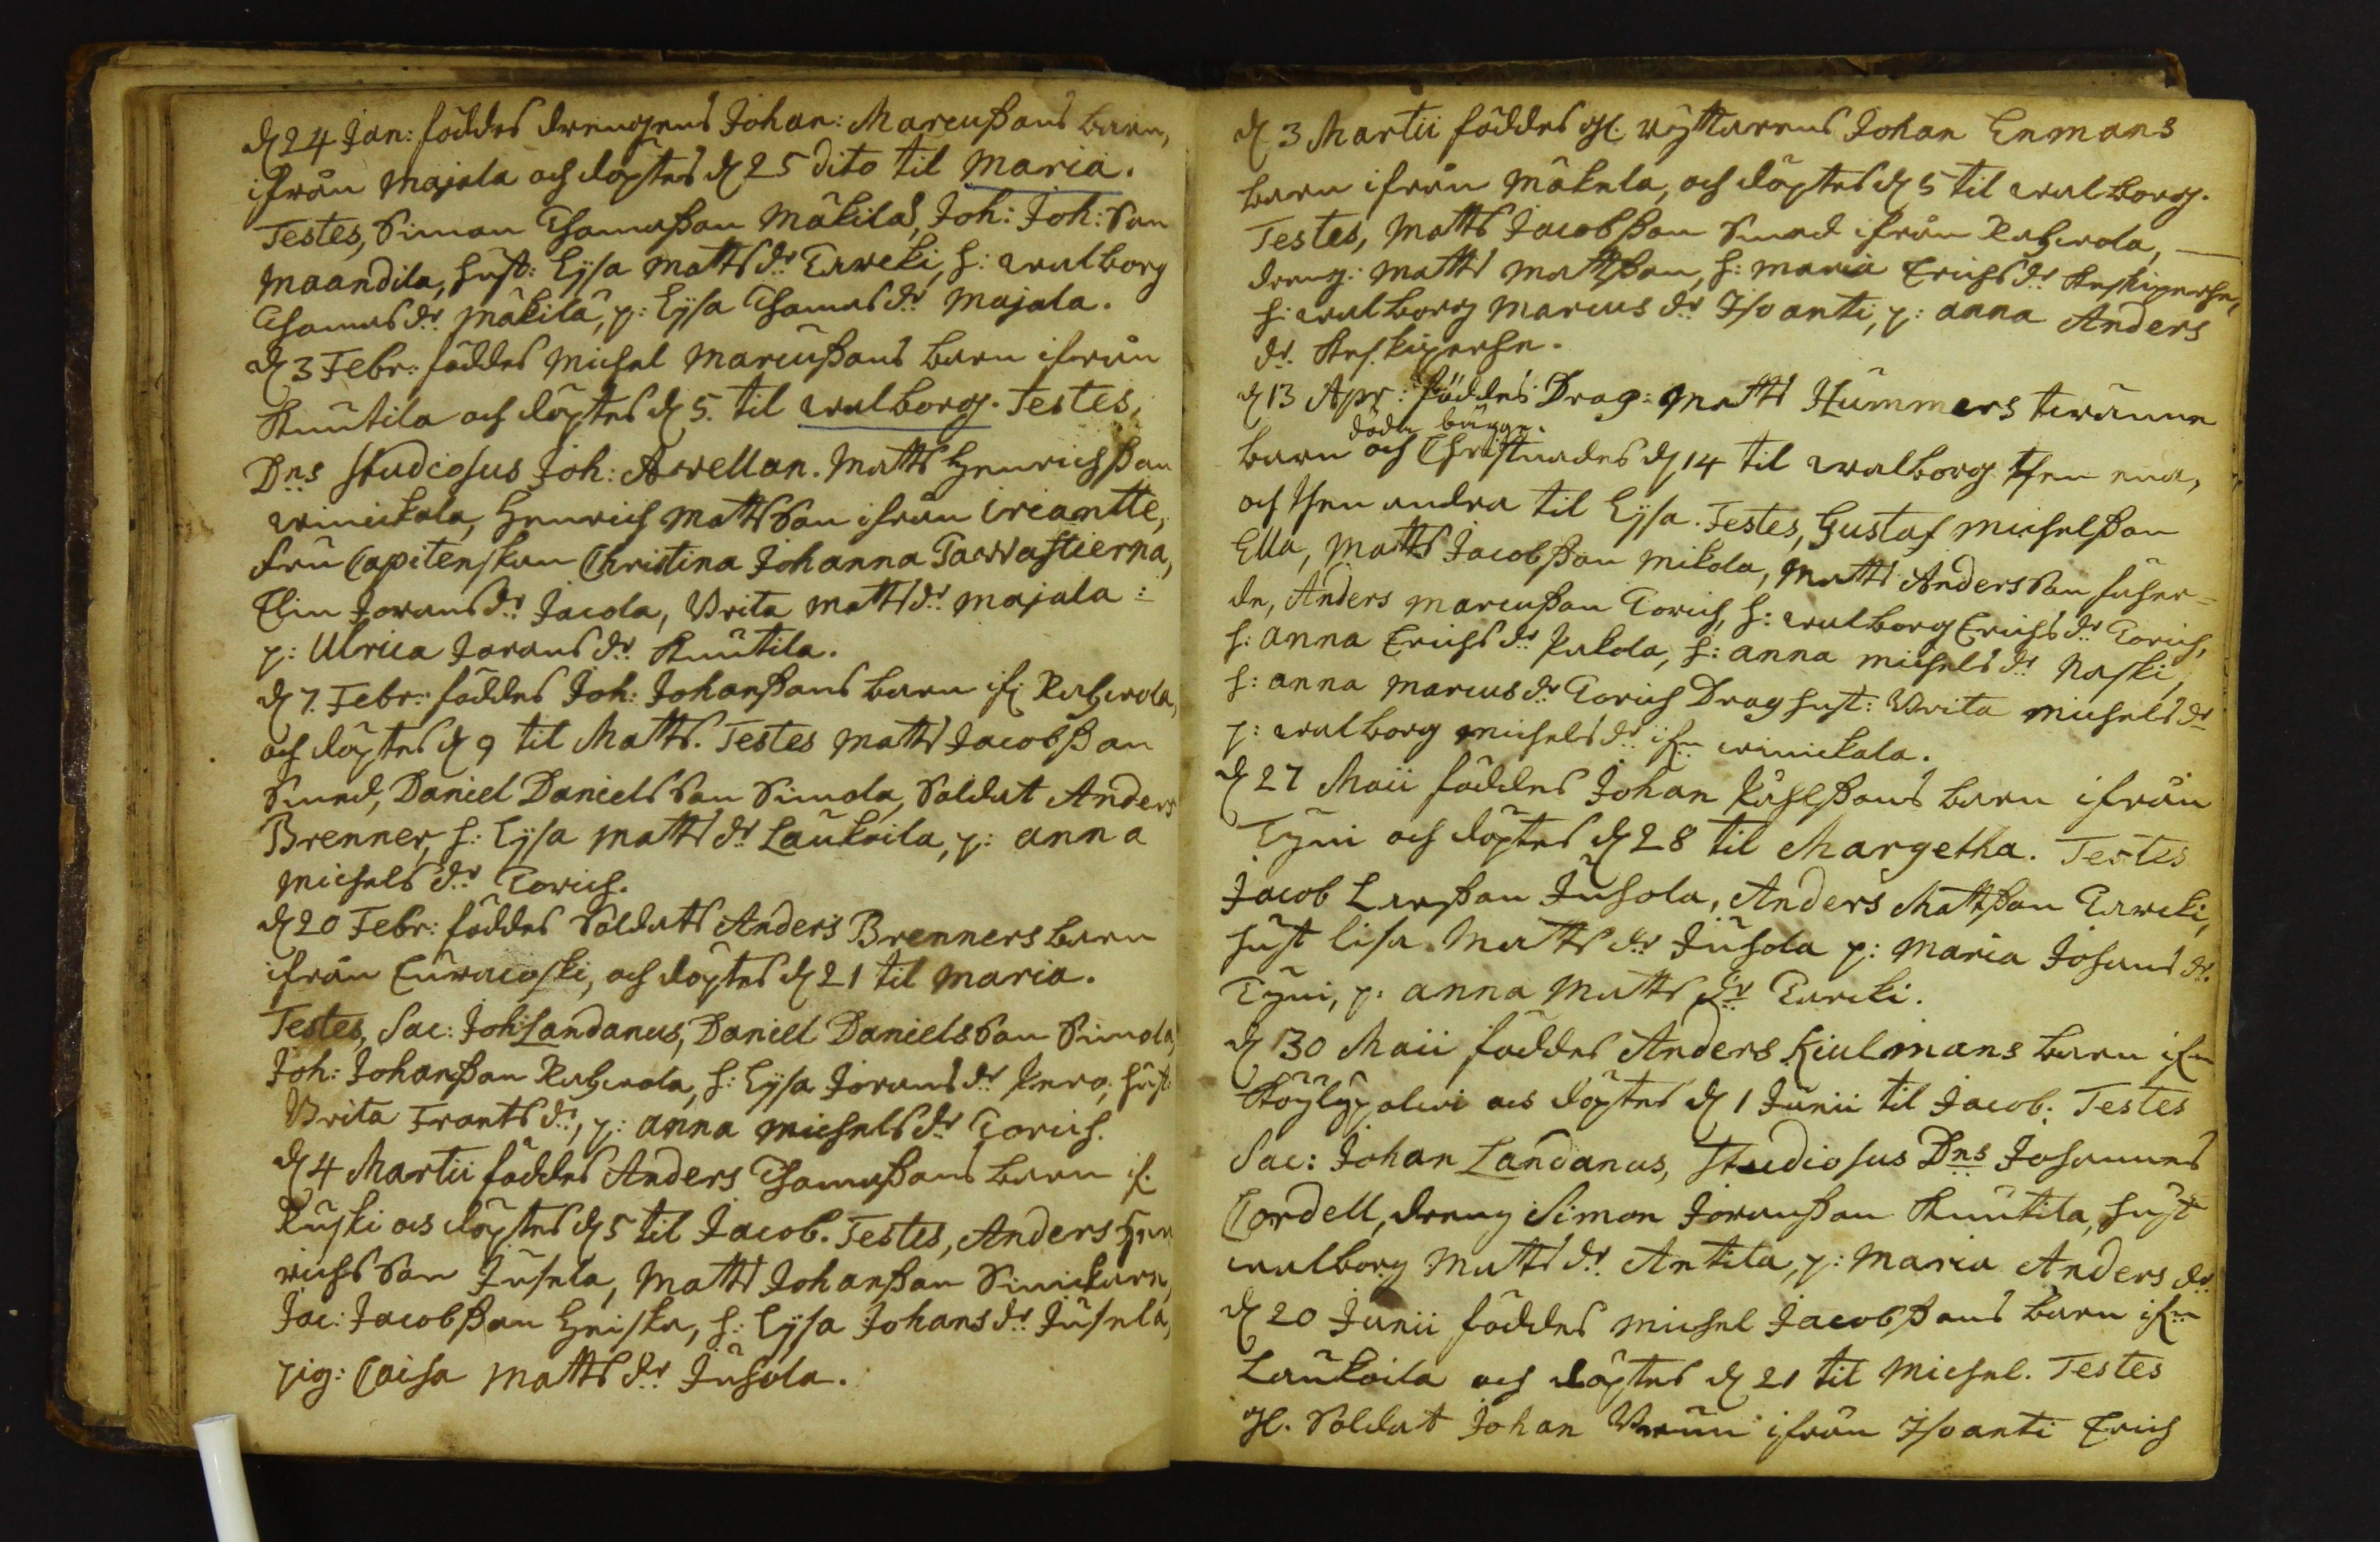 d 24 Jan: föddes drengens Johan: Marcußons barn,
ifrån Majala och döptes d 25 dito til Maria.
Testes, Simon Thomaßon Mäkilä, Joh: Joh: Son
Maandila, hust: Lijsa Matts dr Erweki, h: Walborg
Thomas dr Mäkilä, p: Lijsa Thomas dr Majala.
d 3 Febr: föddes Michel Marcußons barn ifrån
Knuutila och döptes d 5. til Walborg. Testes,
Dns Studiosus Joh: Avellan. Matts Henrichßon
Winickala, Henrich Mattsson ifrån Ireantte,
fru Capitenskan Christina Johanna Tawastierna,
Elin Jörans dr Jacola, Brita Matts dr Majala:
p: Ulrica Jörans dr Knuutila.
d 7. Febr: föddes Joh: Johanßons barn if: Rahwola,
och döptes d 9 til Matts. Testes Matts Jacobßon
Smed, Daniel Danielsson Simola, Soldat Anders
Brenner, h: Lijsa Matts dr Laukoila, p: Anna
Michels dr Torich.
d 20 Febr: föddes Soldats Anders Brenners barn
ifrån Curvacoski, och döptes d 21 til Maria.
Testes, Sac: Joh: Landanus, Daniel Danielsson Simola,
Joh: Johanßon Rahwola, h: Lijsa Jörans dr Pero, hust:
Brita Frants dr, p: Anna Michels dr Torich.
d 4 Martii föddes Anders Thomaßons barn if:
Kuski och döptes d 5 til Jacob. Testes, Anders Hen
richsson Jusela, Matts Johanßon Sinickarn,
Jac: Jacobßon Heiska, h: Lijsa Johans dr Jusela,
pig: Caisa Matts dr Jusola.
d 3 Martii föddes gl. ryttarens Johan Enmans
barn ifrån Mäkela, och döptes d 5 til Walborg.
Testes, Matts Jacobßon Smed ifrån Rahwola,
dreng: Matts Mattßon, h: Maria Erichs dr
h: Walborg Marcus dr Isoanti, p: Anna Anders
dr
d 13 Apr: föddes Drag: Matts Hummers twänne
döda bägge.
barn och Christnades d 14 til Walborg then ena,
och then andra til Lijsa. Testes, Gustaf Michelßon
Ella, Matts Jacobßon Mikola, Matts Andersson
Anders Marcußon Torich, h: Walborg Erichs dr Torich,
h: Anna Erichs dr Pukola, h: Anna Michels dr Naski,
h: Anna Marcus dr Torich Drag hust: Brita Michels dr
p: Walborg Michels dr ifn Winickala.
d 27 Maii föddes Johan Påhlßons barn ifrån
Tyni och döptes d 28 til Margetha. Testes
Jacob Larßon Jusola, Anders Mattßon Erweki,
hust Lisa Matts dr Jusola p: Maria Johans dr
Tyni, p: Anna Matts dr Erweki.
d 30 Maii föddes Anders Kiulmans barn ifn
Köylypolwi och döptes d 1 Junii til Jacob: Testes
Sac: Johan Landanus, Studiosus Dns Johannes
Cordell, dreng Simon Jöranßon Knuutila, hust
Walborg Matts dr Antila, p: Maria Anders dr
d 20 Junii föddes Michel Jacobßons barn ifn
Laukoila och döptes d 21 til Michel. Testes
gl. Soldat Johan Bruun ifrån Isoanti Erich